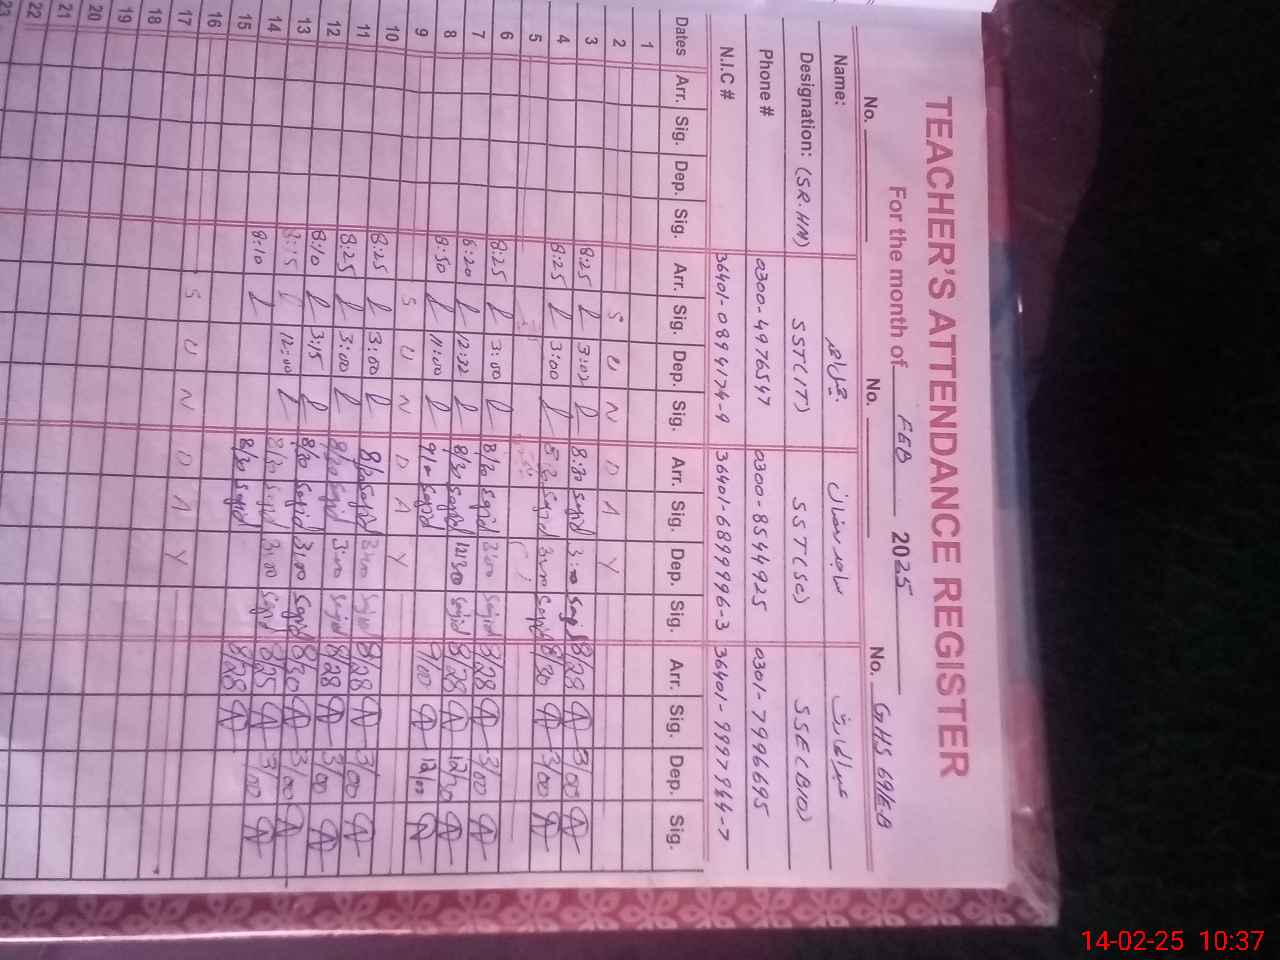 TEACHER'S ATTENDANCE REGISTER
For the month of FEB 2025
No. No. No. GHS 69/E.B
Name: ساجد رمضان
Designation: (SR.HM) SST(IT) SST(SC) SSE(BIO)
Phone # 0300-4976547 0300-8544925 0301-7996695
N.I.C # 36401-0894174-9 36401-6899996-3 36401-9997964-7
Dates Arr. Sig. Dep. Sig. Arr. Sig. Dep. Sig. Arr. Sig. Dep. Sig. Arr. Sig. Dep. Sig.
1
2 S U N D A Y
3 8:25 3:02 8:30 sajid 3:00 8/28 3/00
4 8:25 3:00 8:30 sajid 3:00 sajid 8/30 3/00
5
6 8:25 3:00 8/30 sajid 3:00 sajid 8/28 3/00
7 8:20 12:32 8/30 sajid 12:30 sajid 8/28 12/30
8 8:50 11:00 9/00 sajid 9/00 12/00
9 S U N D A Y
10 8:25 3:00 8/30 sajid 3:00 sajid 8/28 3/00
11 8:25 3:00 8/30 sajid 3:00 sajid 8/28 3/00
12 8:10 3:15 8/30 sajid 3:00 sajid 8/30 3/00
13 8:15 12:00 8/30 sajid 3:00 sajid 8/25 3/00
14 8:10 8/30 sajid 8/28
15
16 S U N D A Y
17
18
19
20
21
22
23
14-02-25 10:37